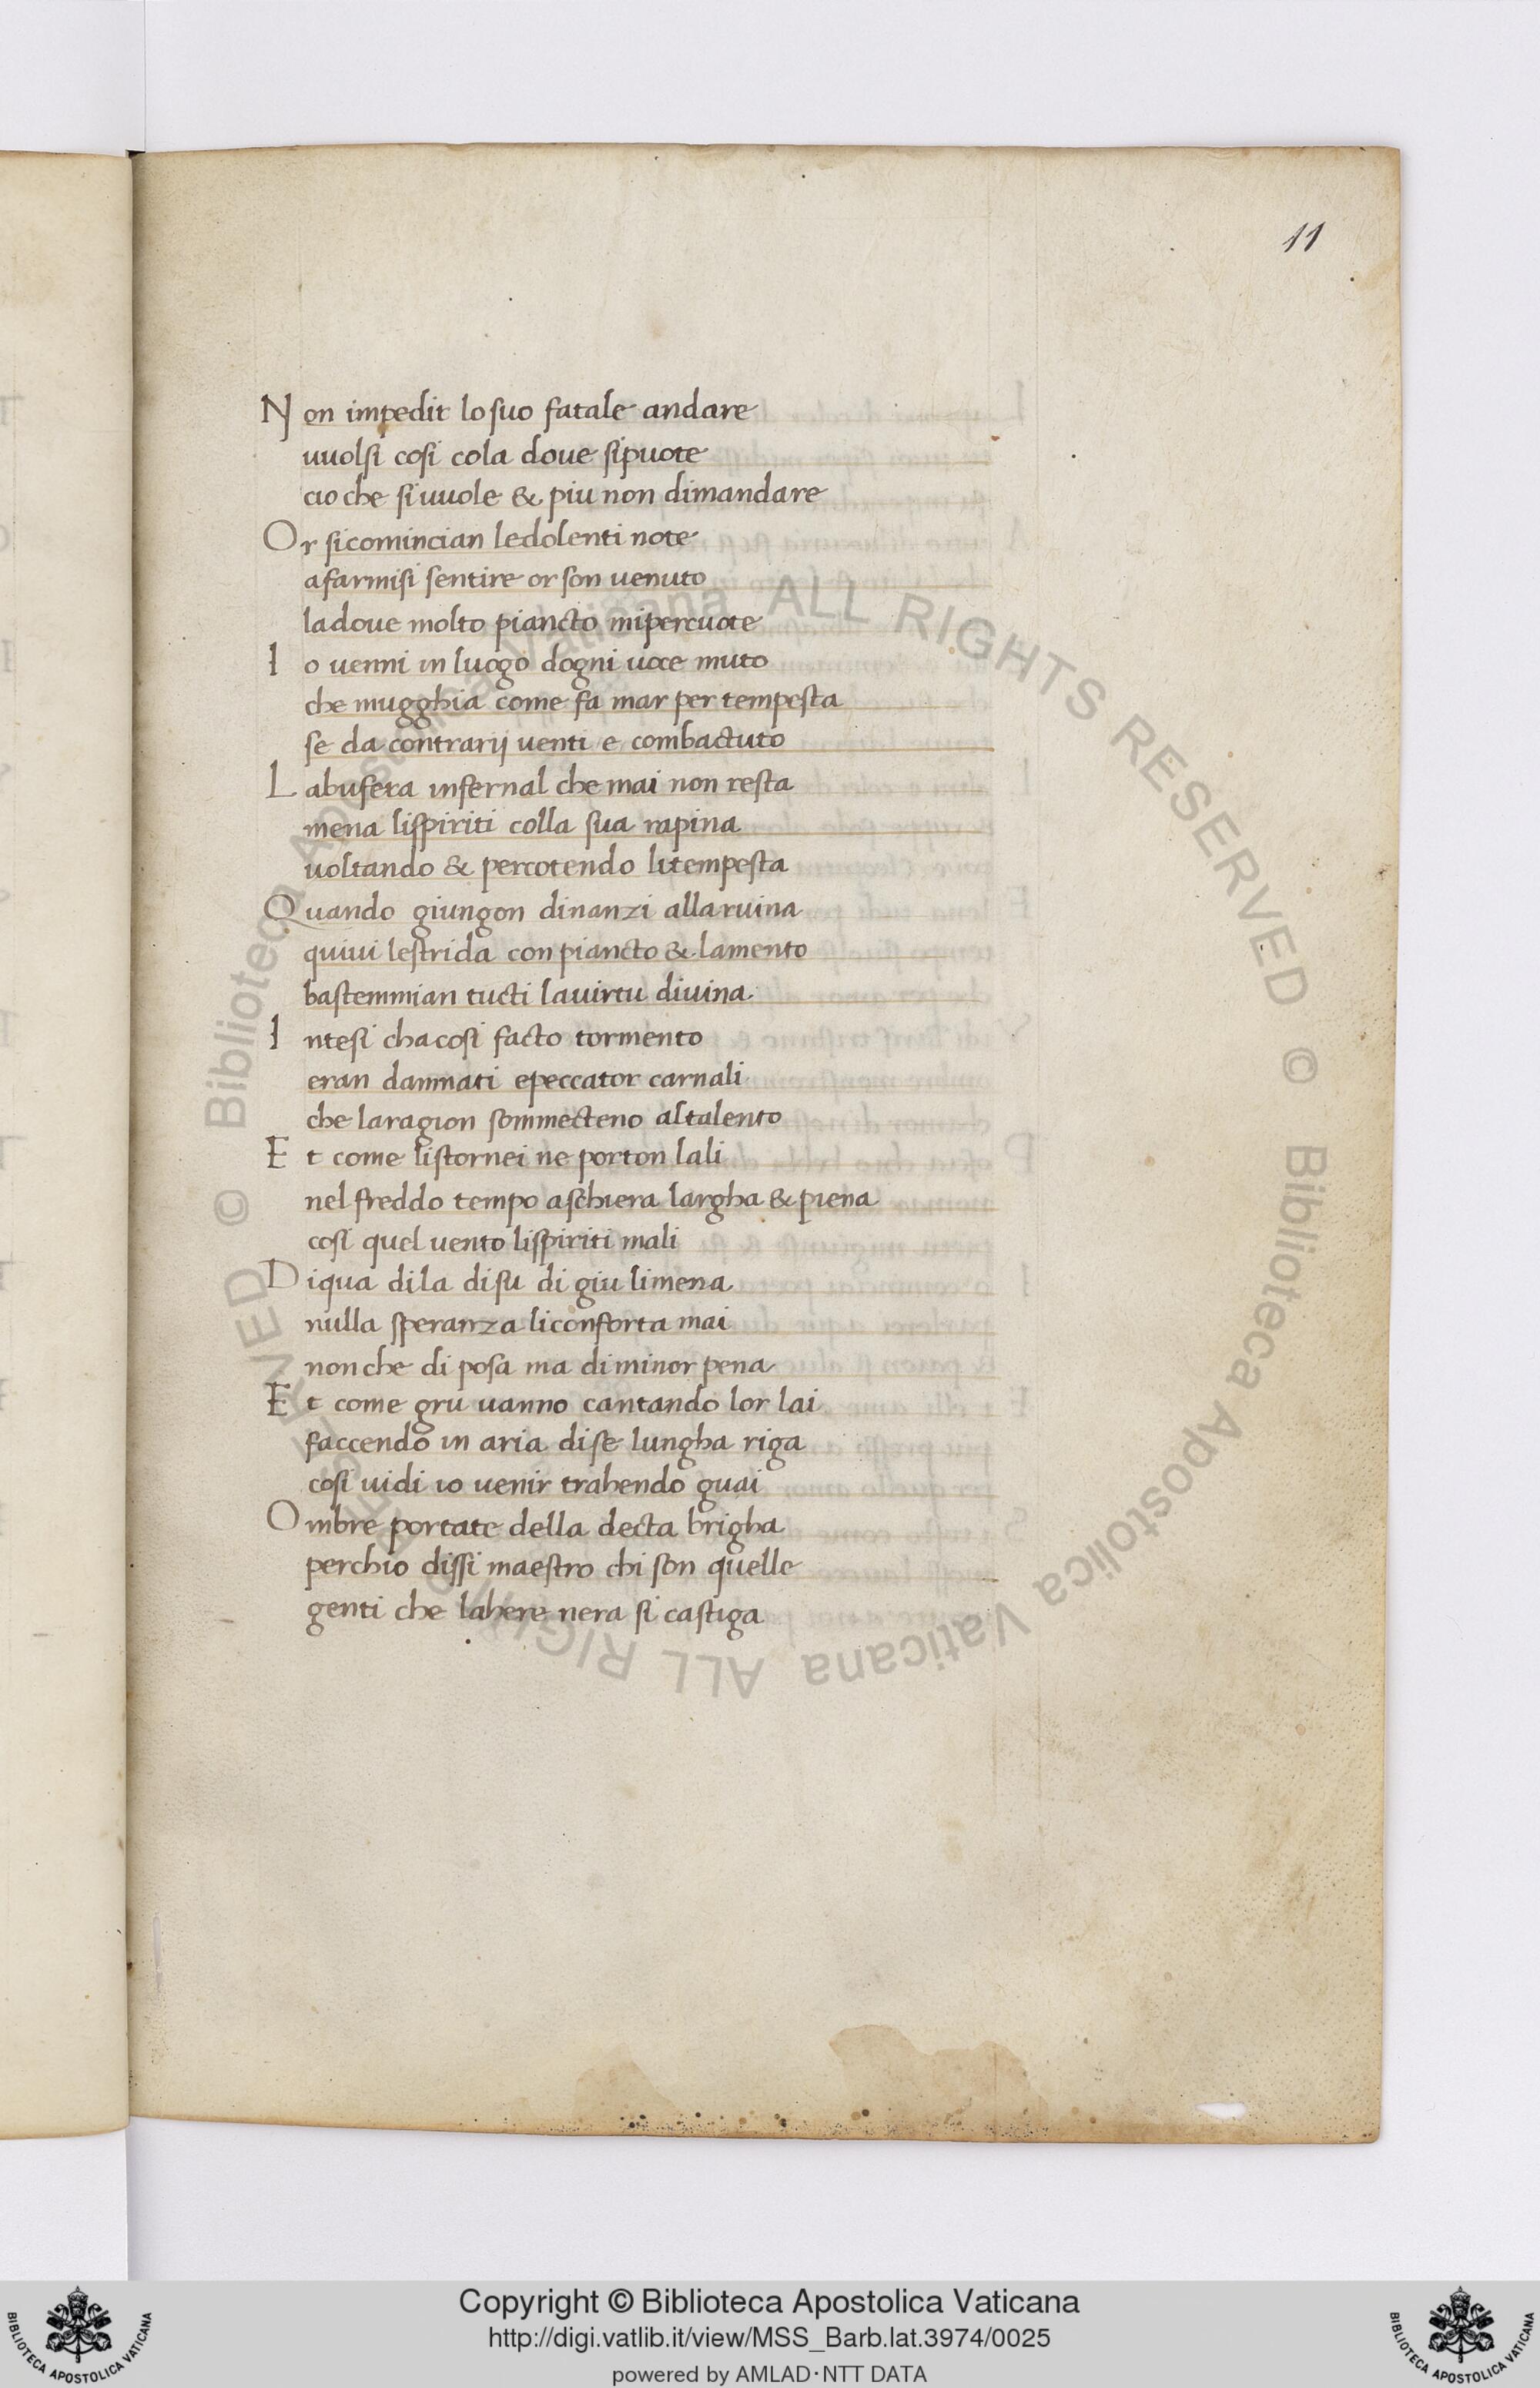 11
Non impedit lo suo fatale andare
vuolsi cosi cola doue sipuote
cio che si vuole & piu non dimandare
Or sicomincian ledolenti note
afarmisi sentire or son uenuto
ladoue molto piancto mipercuote
Io uenni in luogo dogni uoce muto
che mugghia come fa mar per tempesta
se da contrarij uenti e combactuto
Labufera infernal che mai non resta
mena lispiriti colla sua rapina
uoltando & percotendo litempesta
Quando giungon dinanzi allaruina
quiui lestrida con piancto & lamento
bastemmian tucti lauirtu diuina
Intesi chacosi facto tormento
eran dannati epeccator carnali
che laragion sommecteno altalento
Et come listornei ne porton lali
nel freddo tempo aschiera largha & piena
cosi quel uento lispiriti mali
Diqua dila disu di giu limena
nulla speranza liconforta mai
nonche di posa ma diminor pena
Et come gru uanno cantando lor lai
faccendo in aria dise lungha riga
cosi uidi io uenir trahendo guai
Ombre portate della decta brigha
perchio dissi maestro chi son quelle
genti che lahere nera si castiga
© Biblioteca Apostolica Vaticana ALL RIGHTS RESERVED © Biblioteca Apostolica Vaticana ALL RIGHTS RESERVED
Copyright © Biblioteca Apostolica Vaticana
http://digi.vatlib.it/view/MSS_Barb.lat.3974/0025
powered by AMLAD·NTT DATA
BIBLIOTECA APOSTOLICA VATICANA
BIBLIOTECA APOSTOLICA VATICANA